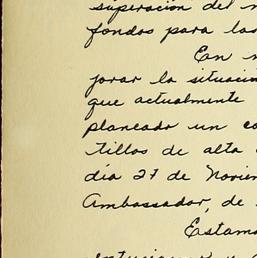 superación del
fondos para las
En
jorar la situación
que actualmente
planeado un
tillos de alta
día 27 de Noviem
Ambassador, de
Estamos